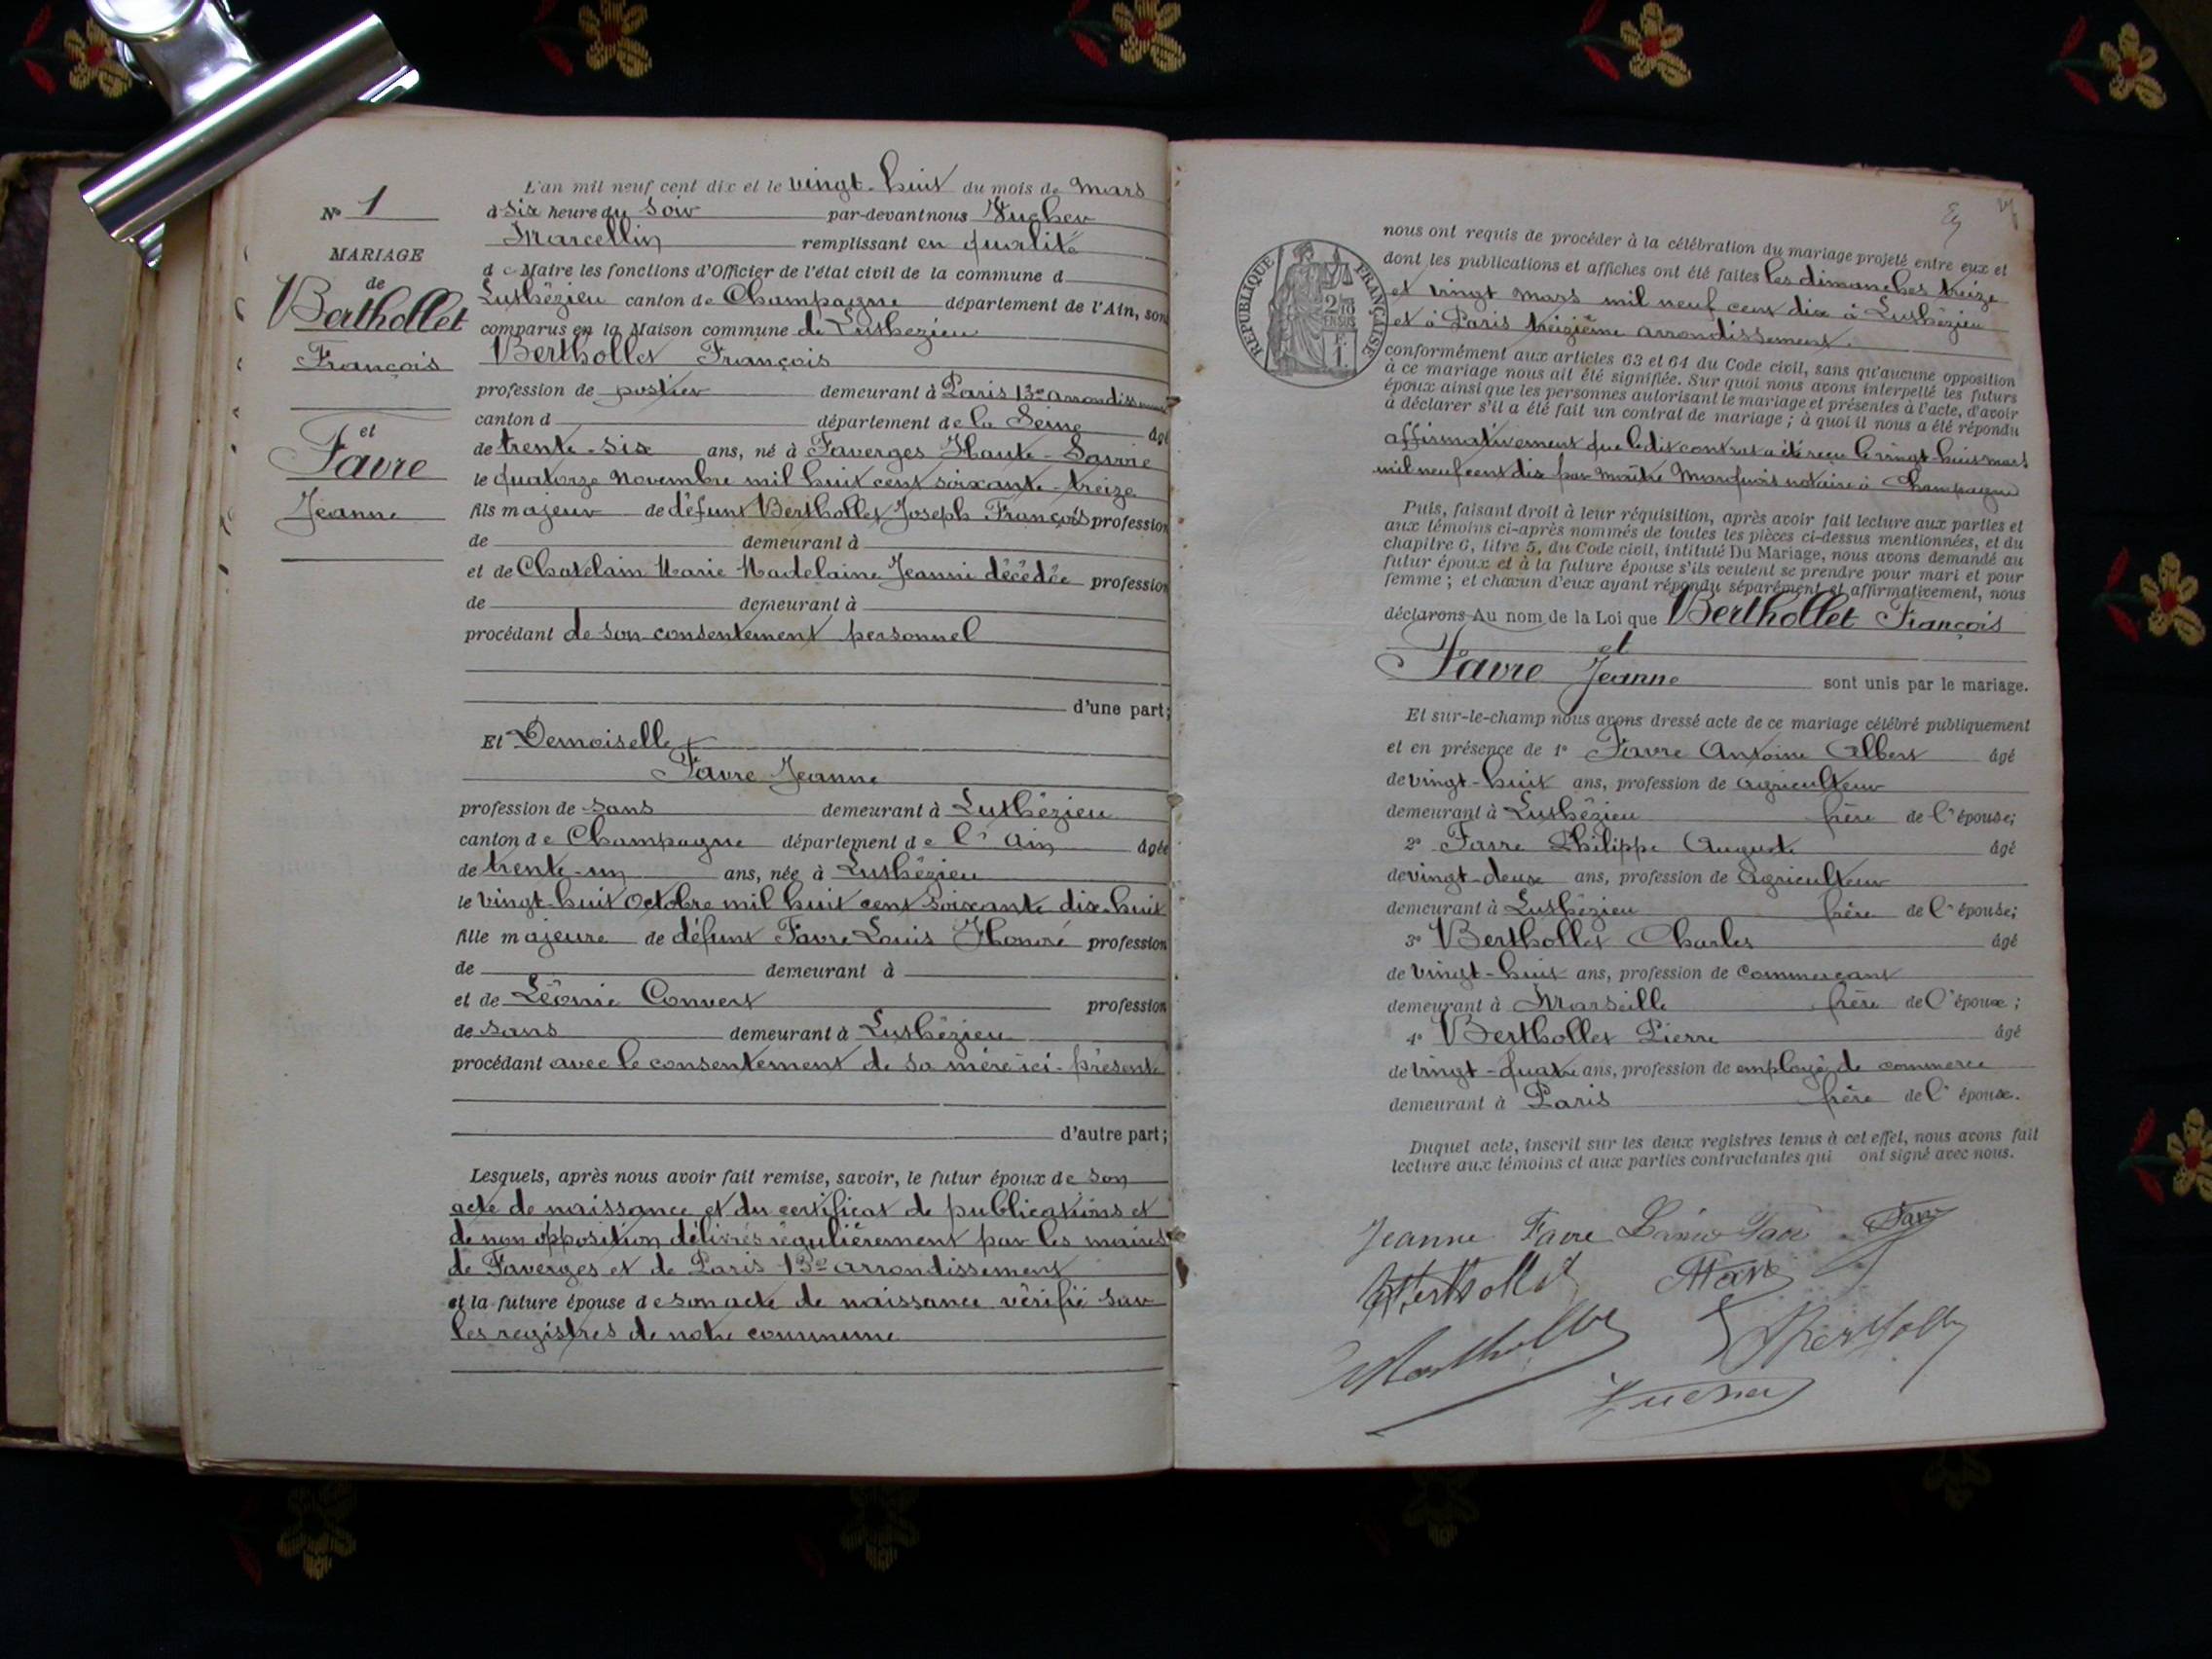 N° 1
MARIAGE
de
Berthollet
François
et
Favre
Jeanne
L'an mil neuf cent dix et le vingt-huit du mois de Mars
à six heure du soir par-devant nous Fucher
Marcellin remplissant en qualité
de Maire les fonctions d'Officier de l'état civil de la commune d
Luthézieu canton de Champagne département de l'Ain, sont
comparus en la Maison commune de Luthézieu
Berthollet François
profession de postier demeurant à Paris 13e arrondissement
canton d département de la Seine âgé
de trente-six ans, né à Faverges Haute-Savoie
le quatorze Novembre mil huit cent soixante-treize
fils majeur de défunt Berthollet Joseph François profession
de demeurant à
et de Chatelain Marie Madelaine Jeanne décédée profession
de demeurant à
procédant de son consentement personnel
d'une part;
Et Demoiselle
Favre Jeanne
profession de sans demeurant à Luthézieu
canton de Champagne département de l'Ain âgée
de trente-un ans, née à Luthézieu
le vingt-huit Octobre mil huit cent soixante dix-huit
fille majeure de défunt Favre Louis Honoré profession
de demeurant à
et de Léonie Convert profession
de sans demeurant à Luthézieu
procédant avec le consentement de sa mère ici-présente
d'autre part;
Lesquels, après nous avoir fait remise, savoir, le futur époux de son
acte de naissance et du certificat de publications et
de non opposition délivrés régulièrement par les maires
de Faverges et de Paris 13e arrondissement
et la future épouse de son acte de naissance vérifié sur
les registres de notre commune
nous ont requis de procéder à la célébration du mariage projeté entre eux et
dont les publications et affiches ont été faites les dimanches treize
et vingt mars mil neuf cent dix à Luthézieu
et à Paris treizième arrondissement.
RÉPUBLIQUE FRANÇAISE
2/10
EN SUS
F.
1.
conformément aux articles 63 et 64 du Code civil, sans qu'aucune opposition
à ce mariage nous ait été signifiée. Sur quoi nous avons interpellé les futurs
époux ainsi que les personnes autorisant le mariage et présentes à l'acte, d'avoir
à déclarer s'il a été fait un contrat de mariage; à quoi il nous a été répondu
affirmativement que le dit contrat a été reçu le vingt-huit mars
mil neuf cent dix par Maître Marquis notaire à Champagne
Puis, faisant droit à leur réquisition, après avoir fait lecture aux parties et
aux témoins ci-après nommés de toutes les pièces ci-dessus mentionnées, et du
chapitre 6, titre 5, du Code civil, intitulé Du Mariage, nous avons demandé au
futur époux et à la future épouse s'ils veulent se prendre pour mari et pour
femme; et chacun d'eux ayant répondu séparément et affirmativement, nous
déclarons Au nom de la Loi que Berthollet François
et
Favre Jeanne sont unis par le mariage.
Et sur-le-champ nous avons dressé acte de ce mariage célébré publiquement
et en présence de 1° Favre Antoine Albert âgé
de vingt-huit ans, profession de agriculteur
demeurant à Luthézieu frère de l'épouse;
2° Favre Philippe Auguste âgé
de vingt-deux ans, profession de agriculteur
demeurant à Luthézieu frère de l'épouse;
3° Berthollet Charles âgé
de vingt-huit ans, profession de commerçant
demeurant à Marseille frère de l'époux;
4° Berthollet Pierre âgé
de vingt-quatre ans, profession de employé de commerce
demeurant à Paris frère de l'époux.
Duquel acte, inscrit sur les deux registres tenus à cet effet, nous avons fait
lecture aux témoins et aux parties contractantes qui ont signé avec nous.
Jeanne Favre
Berthollet